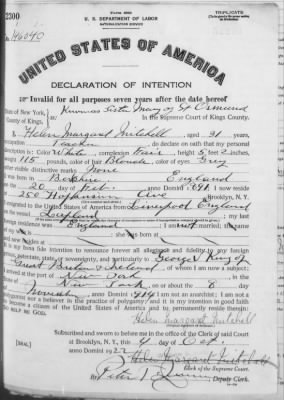 2300
U. S. DEPARTMENT OF LABOR
NATURALIZATION SERVICE
TRIPLICATE
No. 46040
UNITED STATES OF AMERICA
DECLARATION OF INTENTION
Invalid for all purposes seven years after the date hereof
State of New York, Known as Sister Mary of St Osmund
County of Kings, In the Supreme Court of Kings County.
I, Helen Margaret Mitchell, aged 31 years,
occupation Teacher, do declare on oath that my personal
description is: Color White, complexion Fair, height 5 feet 2 inches,
weight 115 pounds, color of hair Blonde, color of eyes Grey
other visible distinctive marks None
I was born in England
on the 20 day of Feb., anno Domini 1891; I now reside
at 250 Hopkinson Ave, Brooklyn, N. Y.
I emigrated to the United States of America from Liverpool England
on the vessel; my last
foreign residence was England; I am not married; the name
she was born at
It is my bona fide intention to renounce forever all allegiance and fidelity to any foreign
prince, potentate, state, or sovereignty, and particularly to George V King of
Great Britain & Ireland, of whom I am now a subject;
I arrived at the port of New York, in the
State of New York, on or about the 8 day
of November, anno Domini 1914; I am not an anarchist; I am not a
polygamist nor a believer in the practice of polygamy; and it is my intention in good faith
to become a citizen of the United States of America and to permanently reside therein:
SO HELP ME GOD.
Helen Margaret Mitchell
Subscribed and sworn to before me in the office of the Clerk of said Court
[SEAL] at Brooklyn, N. Y., this 4 day of Oct.
anno Domini 1922
Helen Margaret Mitchell
Clerk of the Supreme Court.
By Peter, Deputy Clerk.